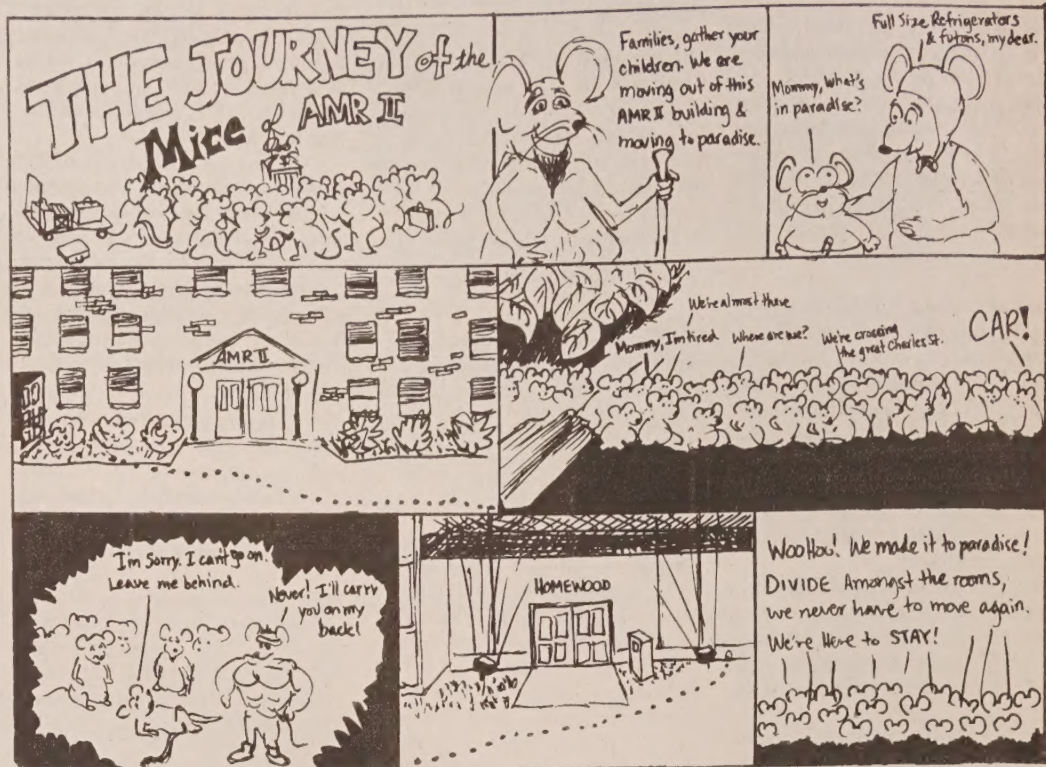 THE JOURNEY of the
Mice AMR II
Families, gather your
children. We are
moving out of this
AMR II building &
moving to paradise.
Mommy, What's
in paradise?
Full Size Refrigerators
& futons, my dear.
AMR II
Mommy, I'm tired
We're almost there
Where are we?
We're crossing
the great Charles St.
CAR!
I'm Sorry. I can't go on.
Leave me behind.
Never! I'll carry
you on my
back!
HOMEWOOD
WooHou! We made it to paradise!
DIVIDE Amongst the rooms,
we never have to move again.
We're Here to STAY!